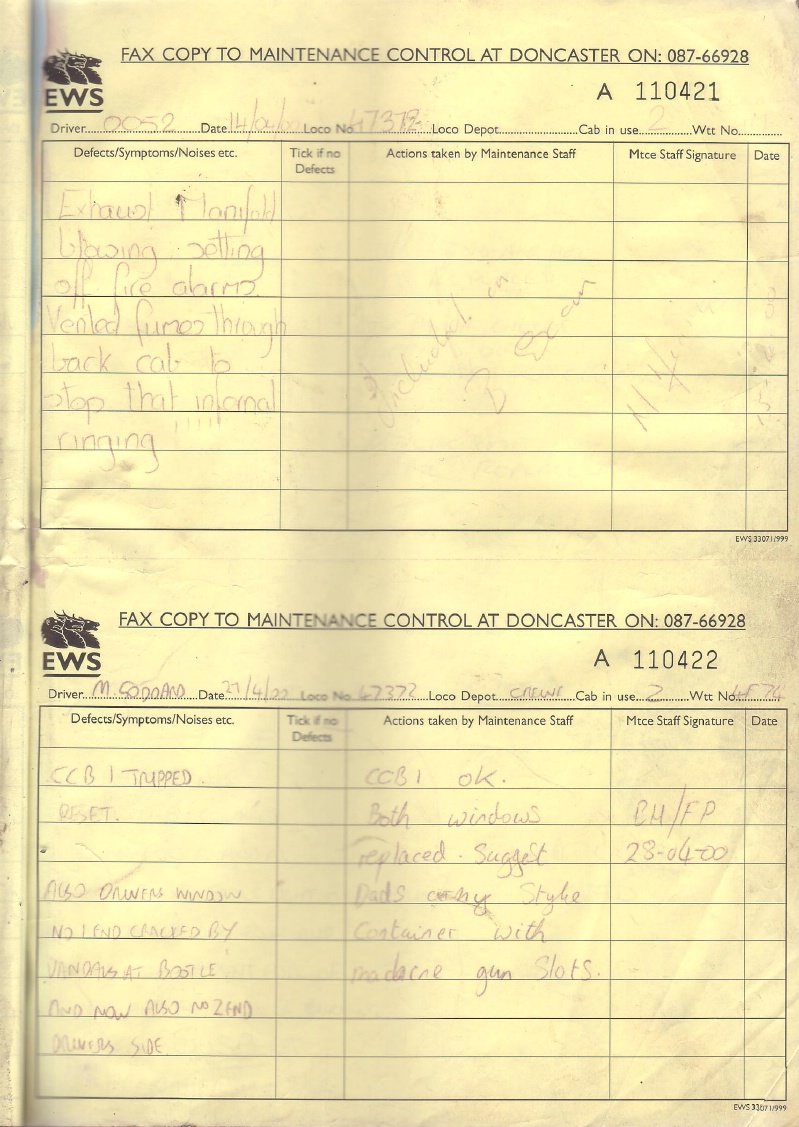 FAX COPY TO MAINTENANCE CONTROL AT DONCASTER ON: 087-66928
EWS
A 110421
Driver 0052 Date 14/04/00 Loco No 47372 Loco Depot Cab in use 2 Wtt No
Defects/Symptoms/Noises etc. Tick if no Defects Actions taken by Maintenance Staff Mtce Staff Signature Date
Exhaust Manifold
blowing setting
off fire alarms.
Vented fumes through
back cab to
stop that infernal
ringing !!!!!
Included in
B Exam
EWS 33071/999
FAX COPY TO MAINTENANCE CONTROL AT DONCASTER ON: 087-66928
EWS
A 110422
Driver M. GODDARD Date 27/4/00 Loco No 47372 Loco Depot CREWE Cab in use 2 Wtt No 4F74
Defects/Symptoms/Noises etc. Tick if no Defects Actions taken by Maintenance Staff Mtce Staff Signature Date
CCB 1 TRIPPED. CCB1 OK.
RESET. Both windows BH/FP
replaced. Suggest 28-04-00
ALSO DRIVERS WINDOW Dads army Style
NO 1 END CRACKED BY Container with
VANDALS AT BOOTLE machine gun Slots.
AND NOW ALSO NO 2 END
DRIVERS SIDE
EWS 33071/999